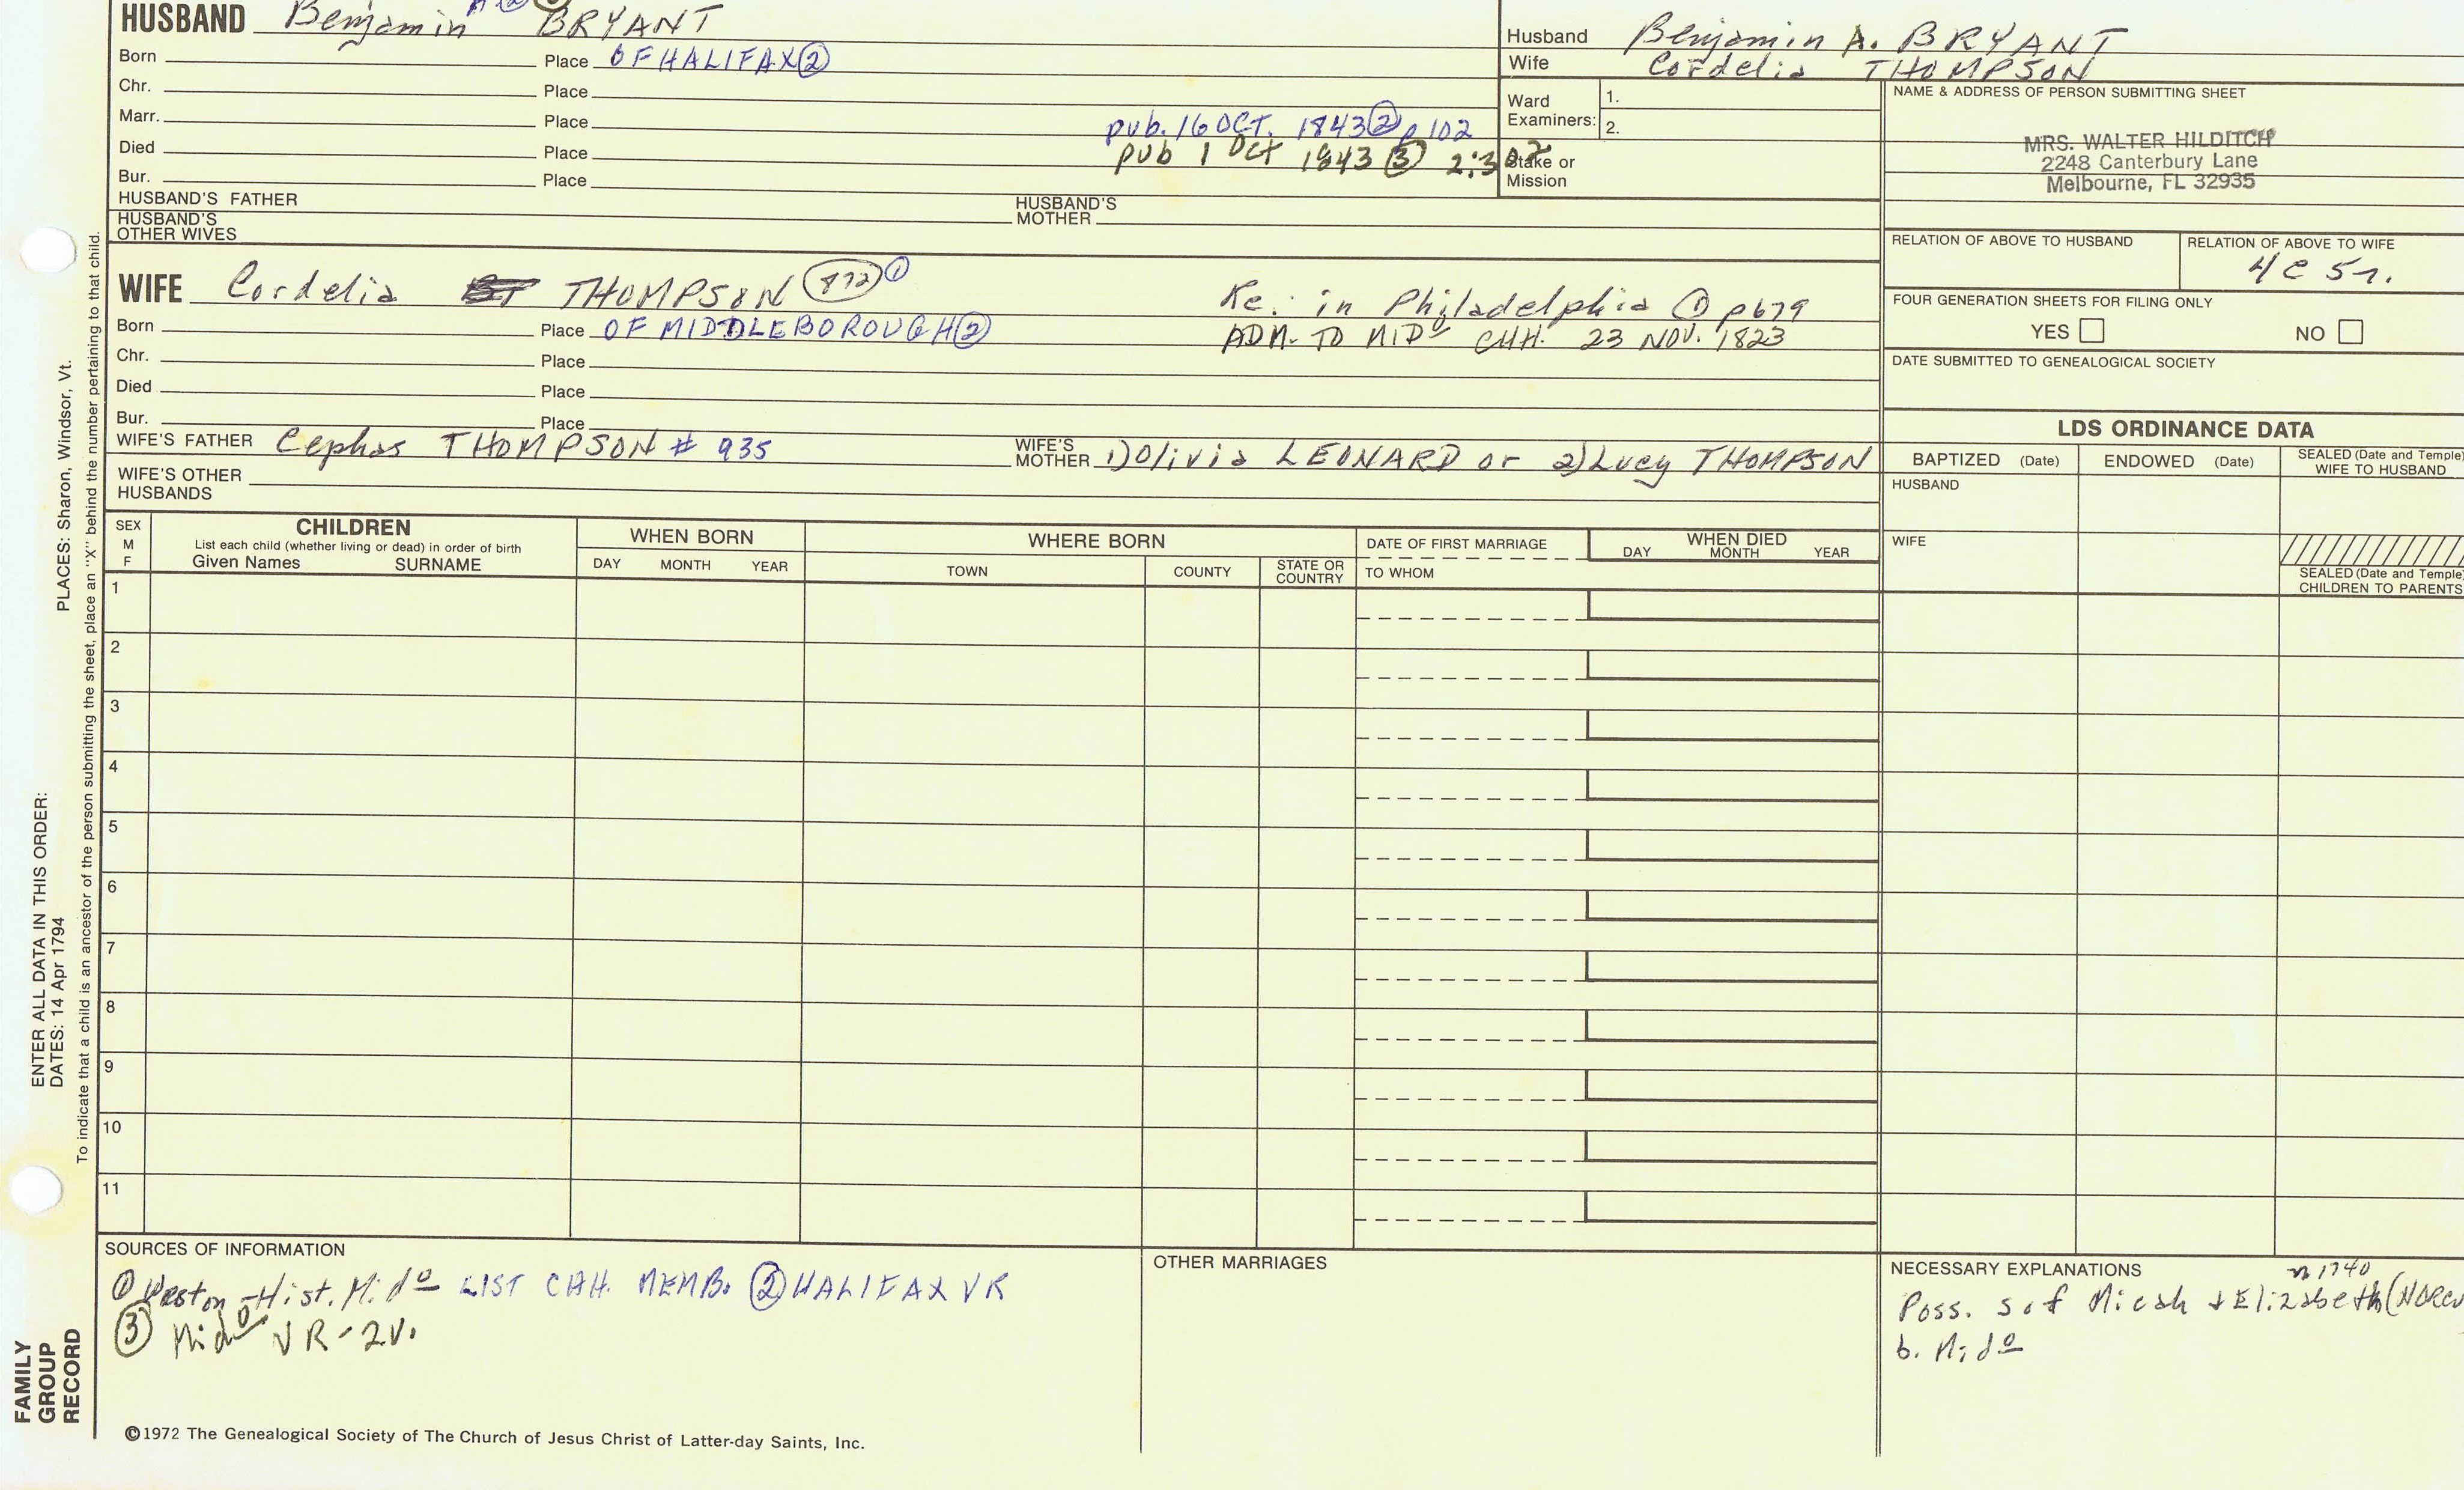 HUSBAND Benjamin A ② BRYANT
Born Place OF HALIFAX ②
Chr. Place
Marr. Place pub. 16 OCT. 1843 ② p 102
Died Place pub 1 Oct 1843 ③ 2:302
Bur. Place
HUSBAND'S FATHER HUSBAND'S MOTHER
HUSBAND'S OTHER WIVES
Husband Benjamin A. BRYANT
Wife Cordelia THOMPSON
Ward Examiners: 1.
2.
Stake or Mission
NAME & ADDRESS OF PERSON SUBMITTING SHEET
MRS. WALTER HILDITCH
2248 Canterbury Lane
Melbourne, FL 32935
RELATION OF ABOVE TO HUSBAND
RELATION OF ABOVE TO WIFE
4C 5r.
FOUR GENERATION SHEETS FOR FILING ONLY
YES NO
DATE SUBMITTED TO GENEALOGICAL SOCIETY
WIFE Cordelia THOMPSON 872 ① Re: in Philadelphia ① p679
Born Place OF MIDDLEBOROUGH ② ADM. TO MIDº CHH. 23 NOV. 1823
Chr. Place
Died Place
Bur. Place
WIFE'S FATHER Cephas THOMPSON # 935 WIFE'S MOTHER 1) Olivia LEONARD or 2) Lucy THOMPSON
WIFE'S OTHER HUSBANDS
LDS ORDINANCE DATA
BAPTIZED (Date) ENDOWED (Date) SEALED (Date and Temple) WIFE TO HUSBAND
HUSBAND
WIFE
SEALED (Date and Temple) CHILDREN TO PARENTS
SEX M F
CHILDREN
List each child (whether living or dead) in order of birth
Given Names SURNAME
WHEN BORN
DAY MONTH YEAR
WHERE BORN
TOWN COUNTY STATE OR COUNTRY
DATE OF FIRST MARRIAGE
TO WHOM
WHEN DIED
DAY MONTH YEAR
1
2
3
4
5
6
7
8
9
10
11
SOURCES OF INFORMATION
① Weston-Hist. Midº LIST CHH. MEMB. ② HALIFAX VR
③ Midº VR-2v.
OTHER MARRIAGES
NECESSARY EXPLANATIONS
m 1740
Poss. s of Micah + Elizabeth
b. Midº
©1972 The Genealogical Society of The Church of Jesus Christ of Latter-day Saints, Inc.
FAMILY GROUP RECORD
ENTER ALL DATA IN THIS ORDER:
DATES: 14 Apr 1794
PLACES: Sharon, Windsor, Vt.
To indicate that a child is an ancestor of the person submitting the sheet, place an "X" behind the number pertaining to that child.